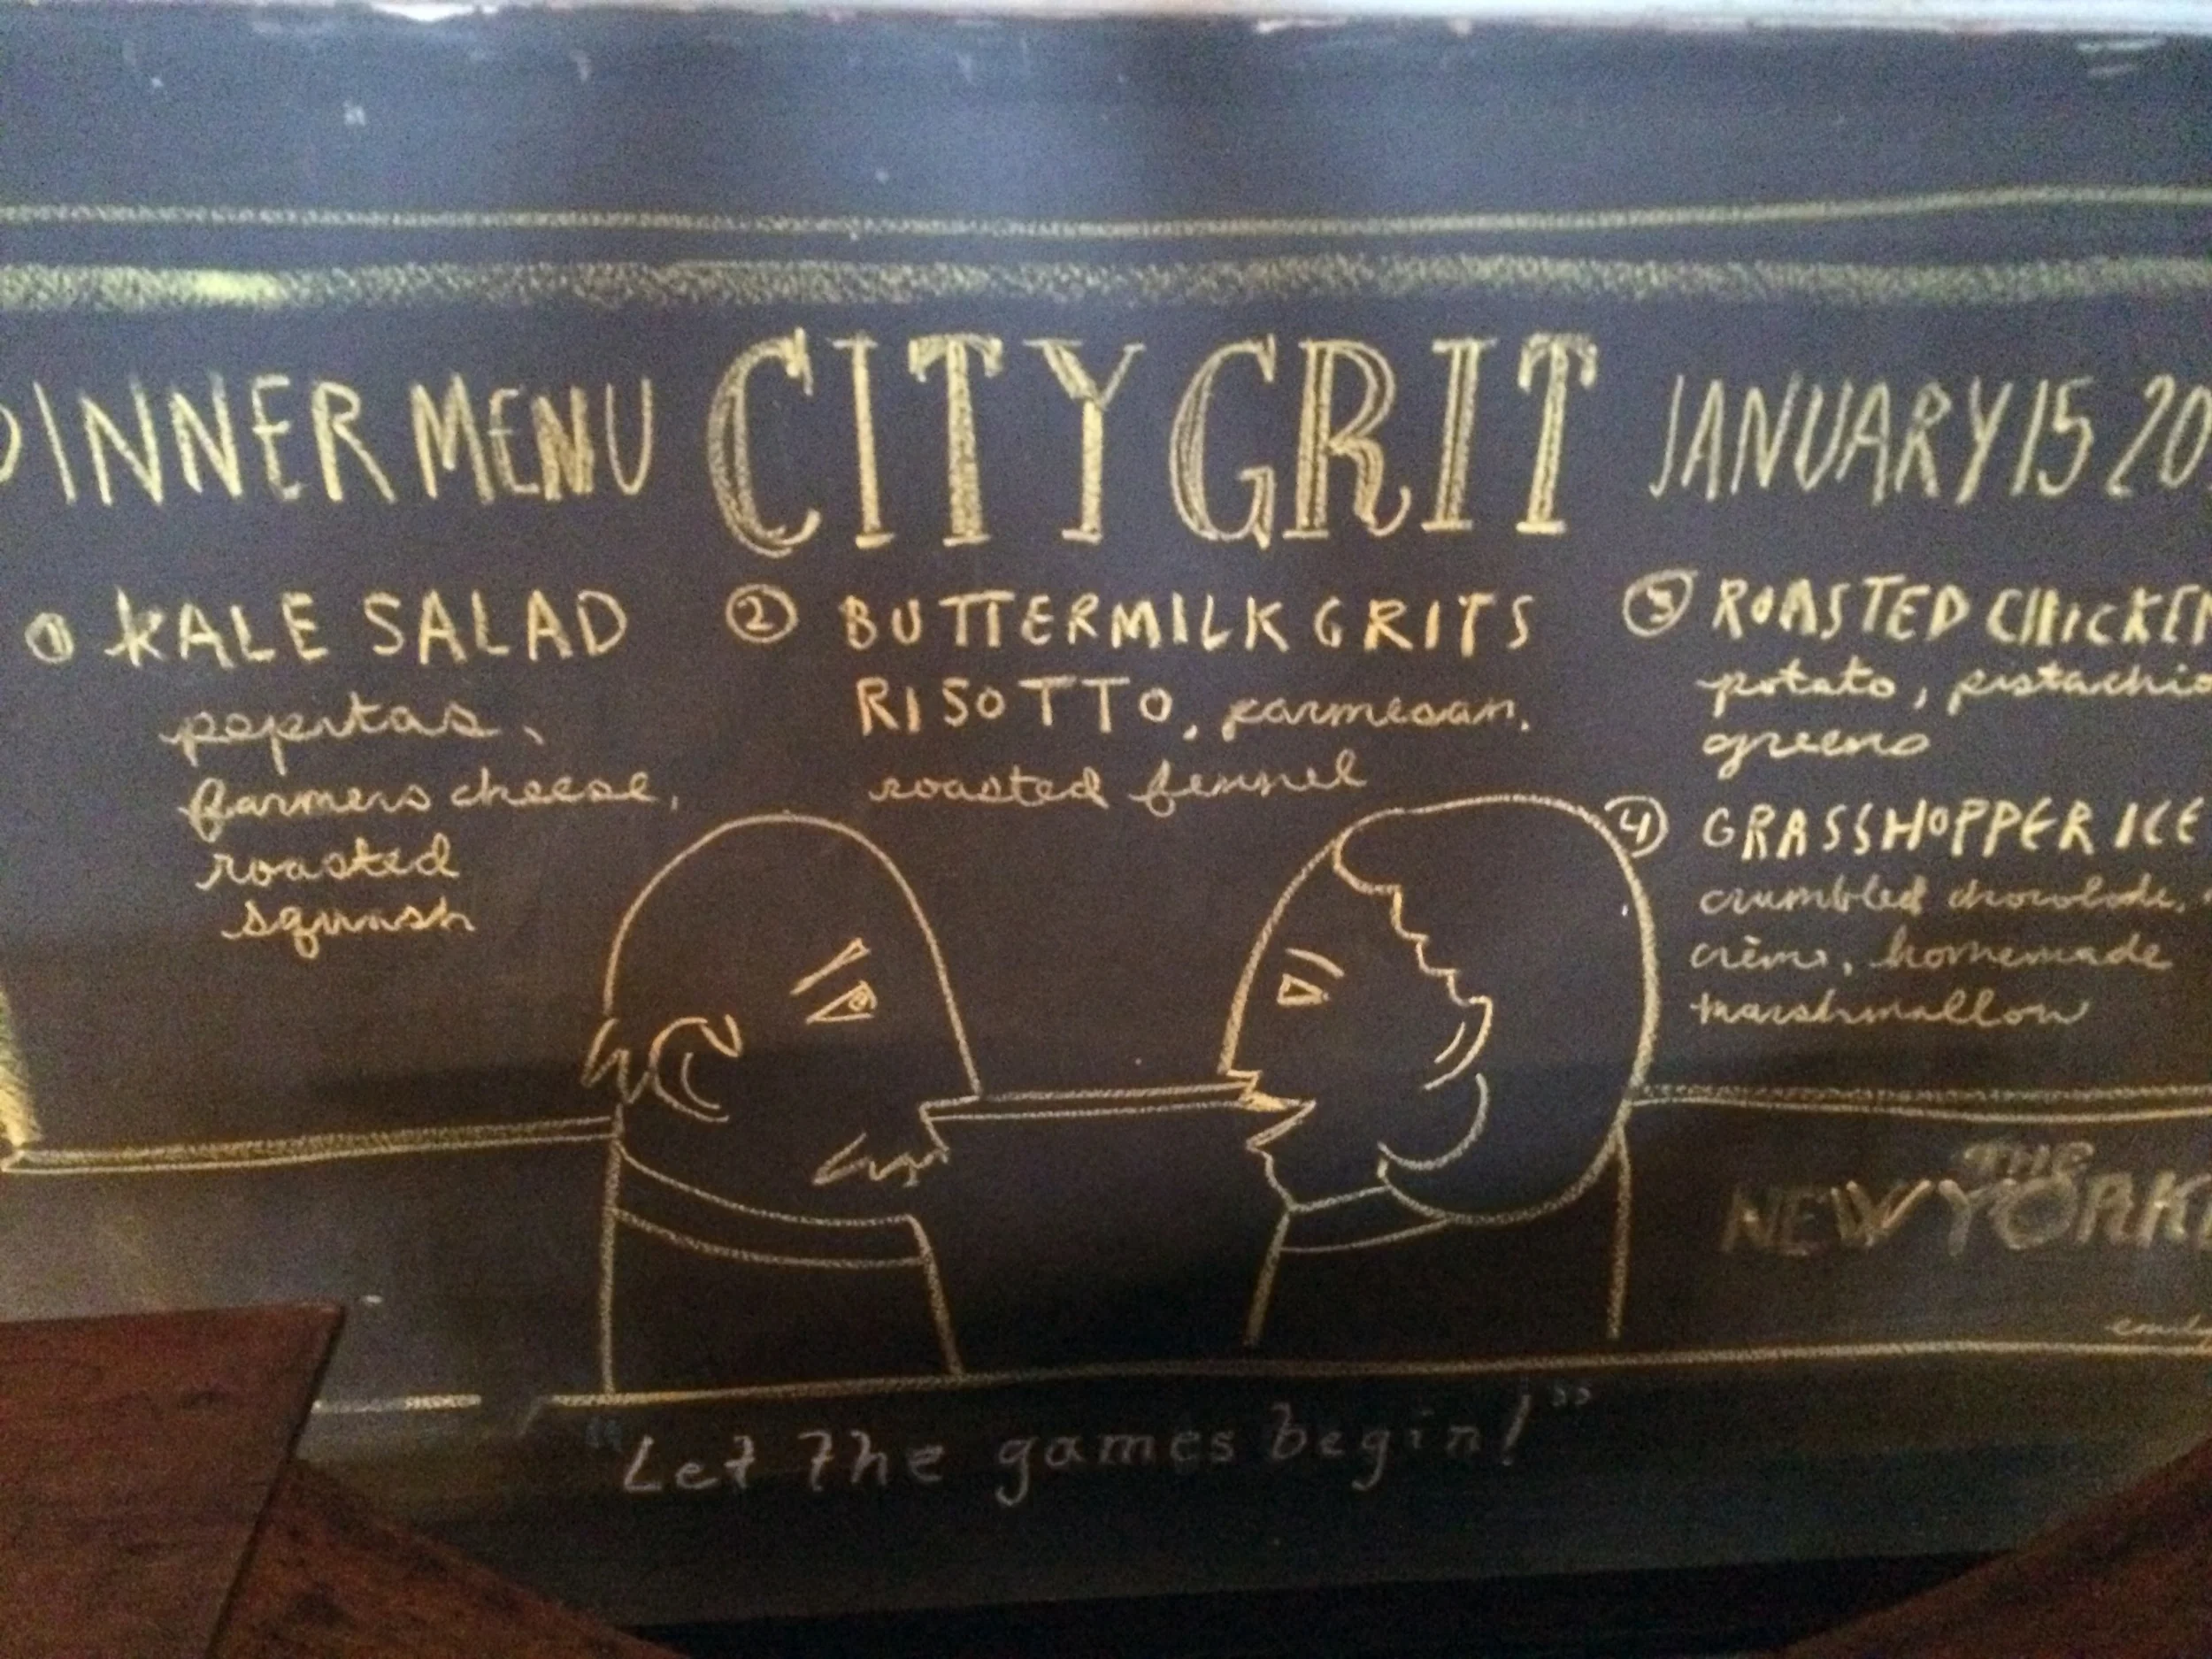 DINNER MENU CITY GRIT JANUARY 15 20
① KALE SALAD
pepitas,
farmers cheese,
roasted
squash
② BUTTERMILK GRITS
RISOTTO, parmesan,
roasted fennel
③ ROASTED CHICKEN
potato, pistachio
greens
④ GRASSHOPPER ICE
crumbled chocolate,
crème, homemade
marshmallow
THE
NEW YORK
"Let the games begin!"